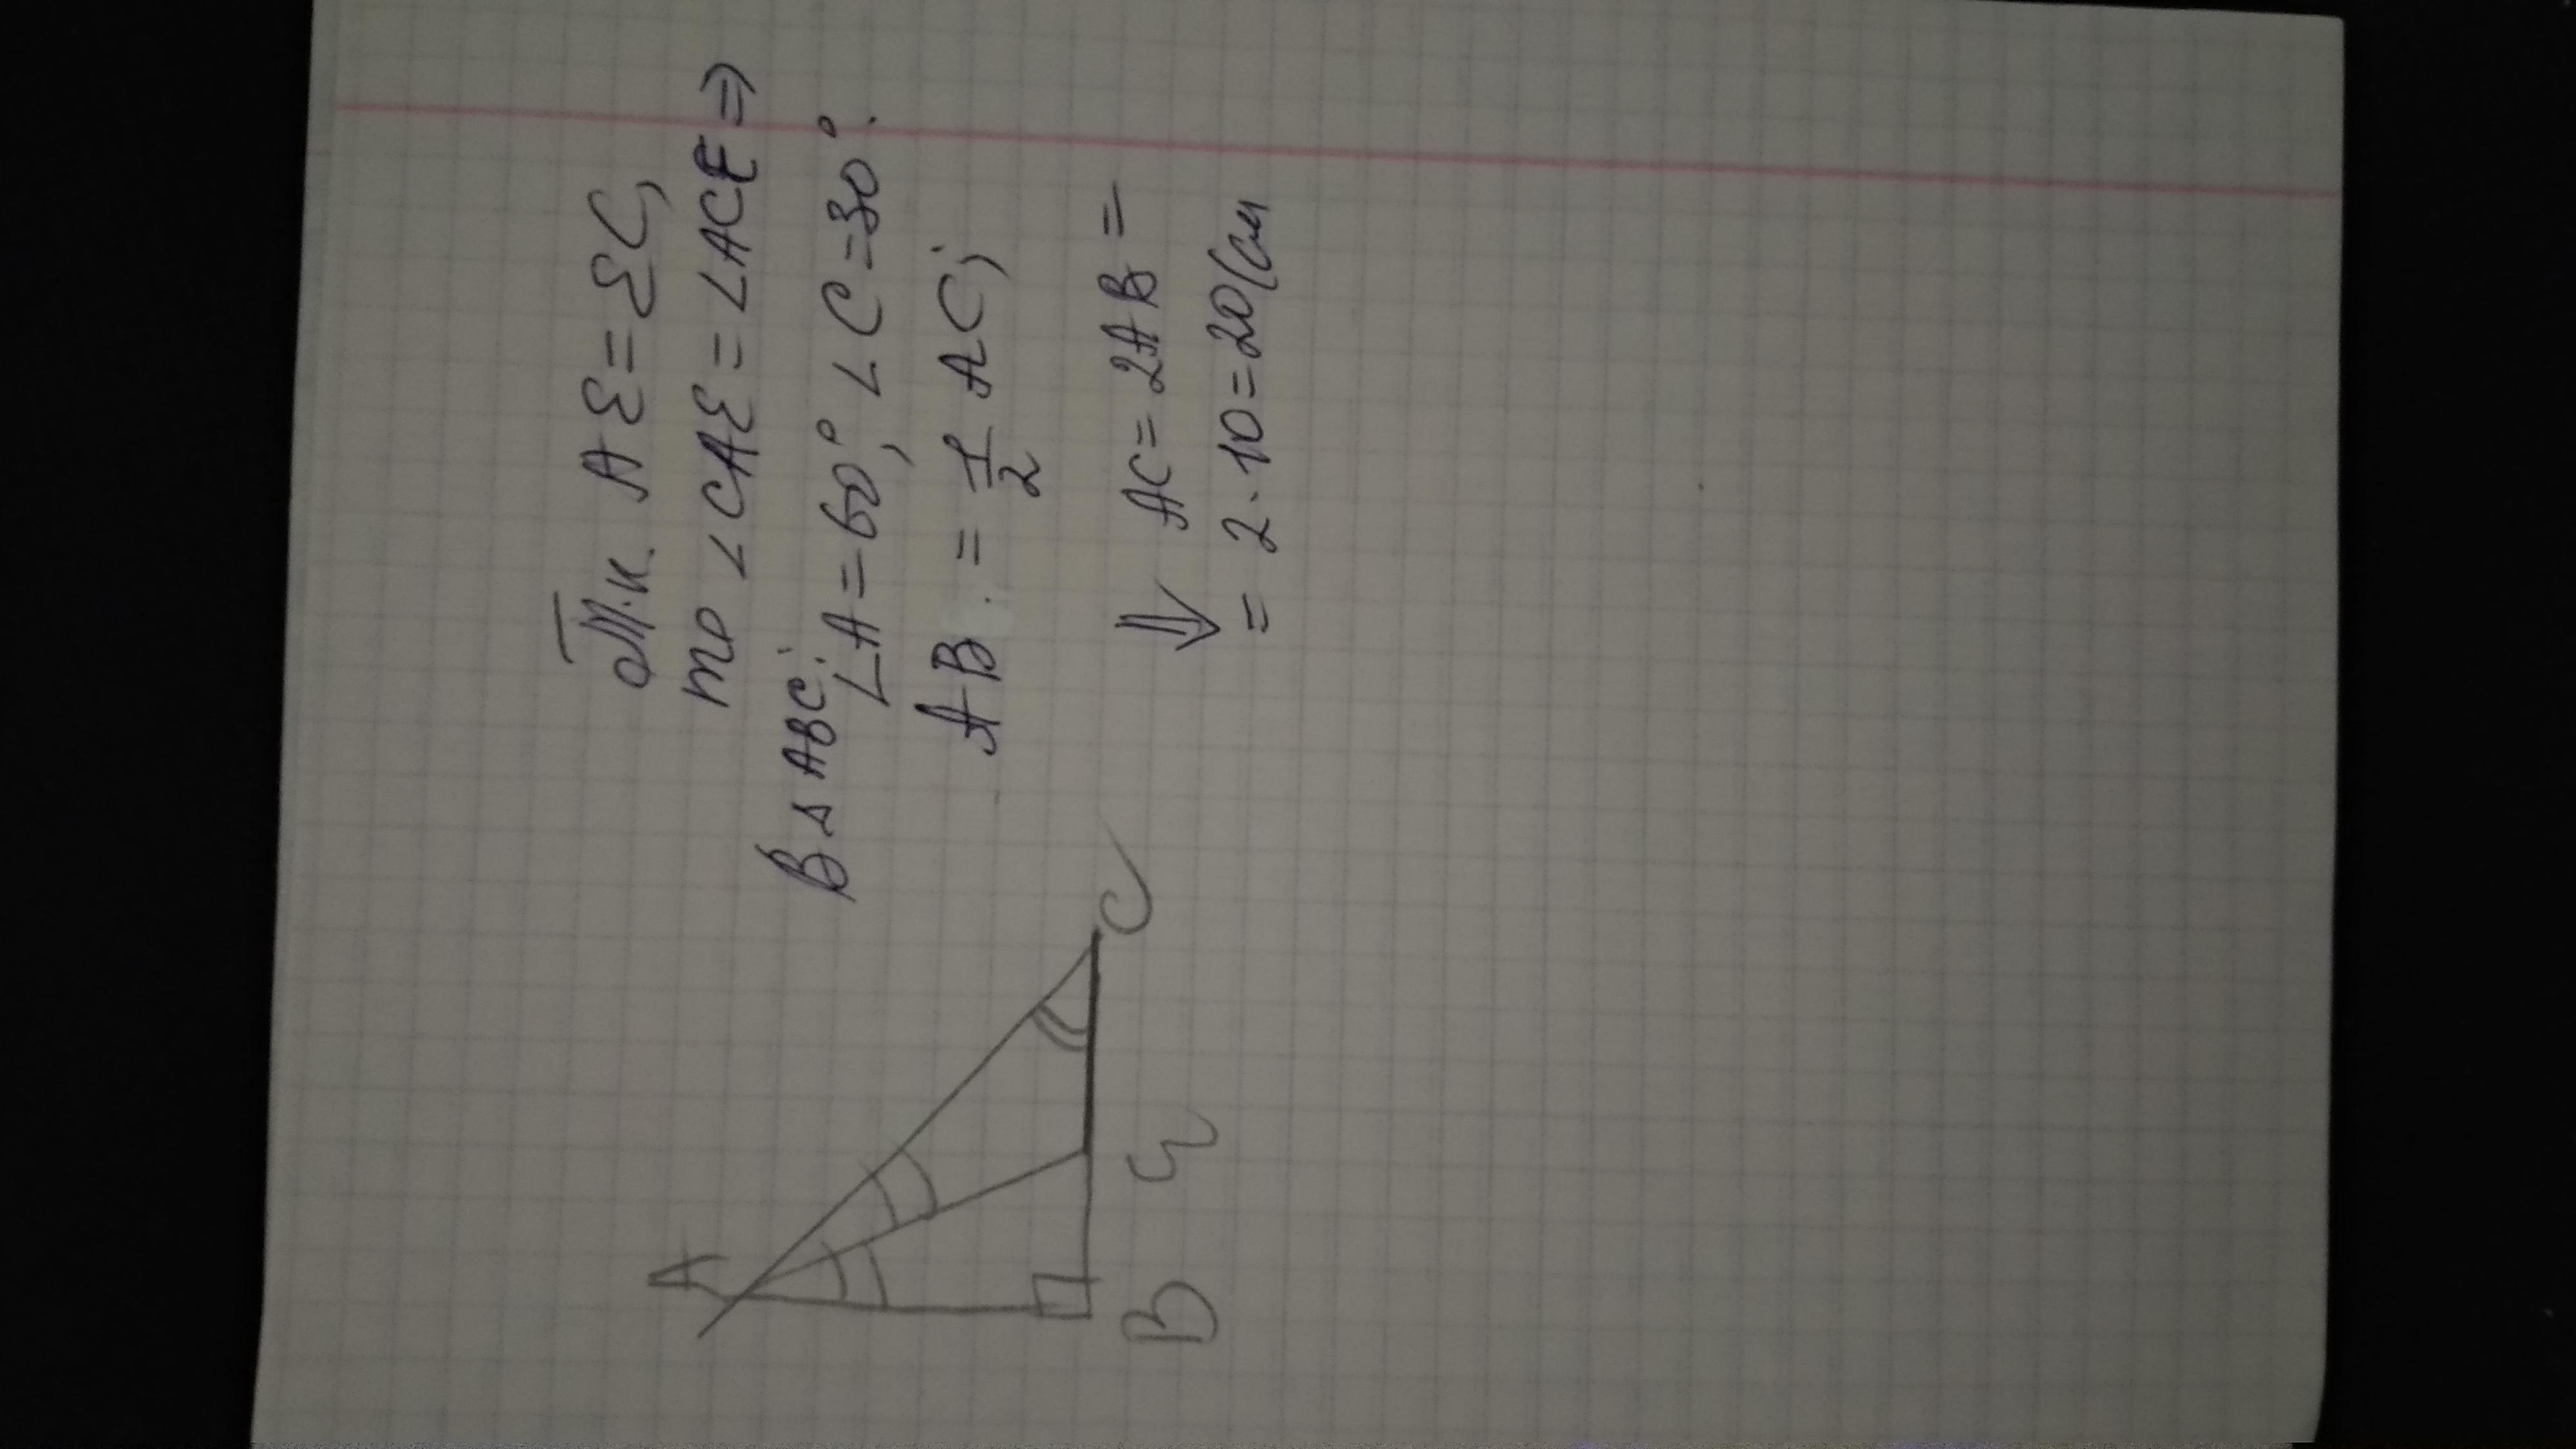 Т.к. AE=EC,
то ∠CAE=∠ACE⇒
В △ABC:
∠A=60°, ∠C=30°.
AB = 1/2 AC;
⇓ AC=2AB=
= 2·10=20(см
A
B
E
C